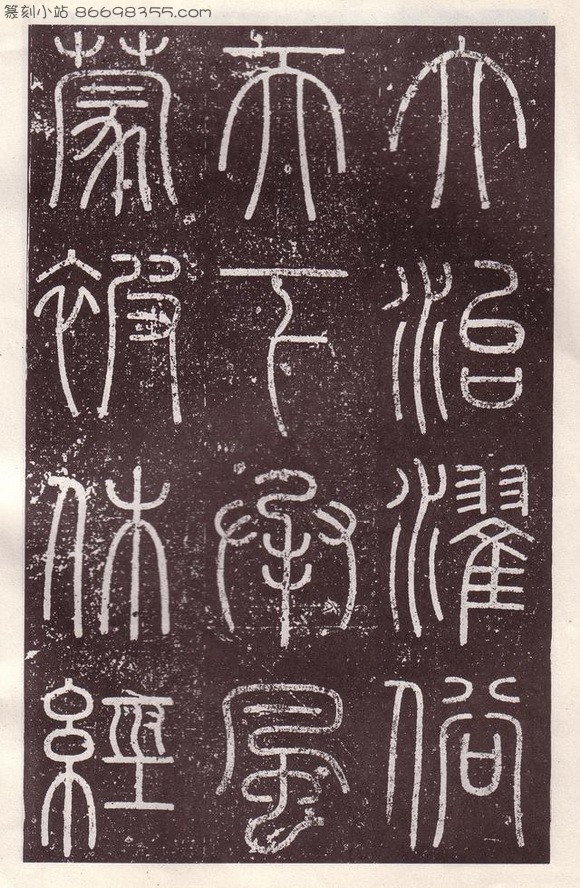 篆刻小站 86698355.com
大治濯俗
天下承風
蒙被休經